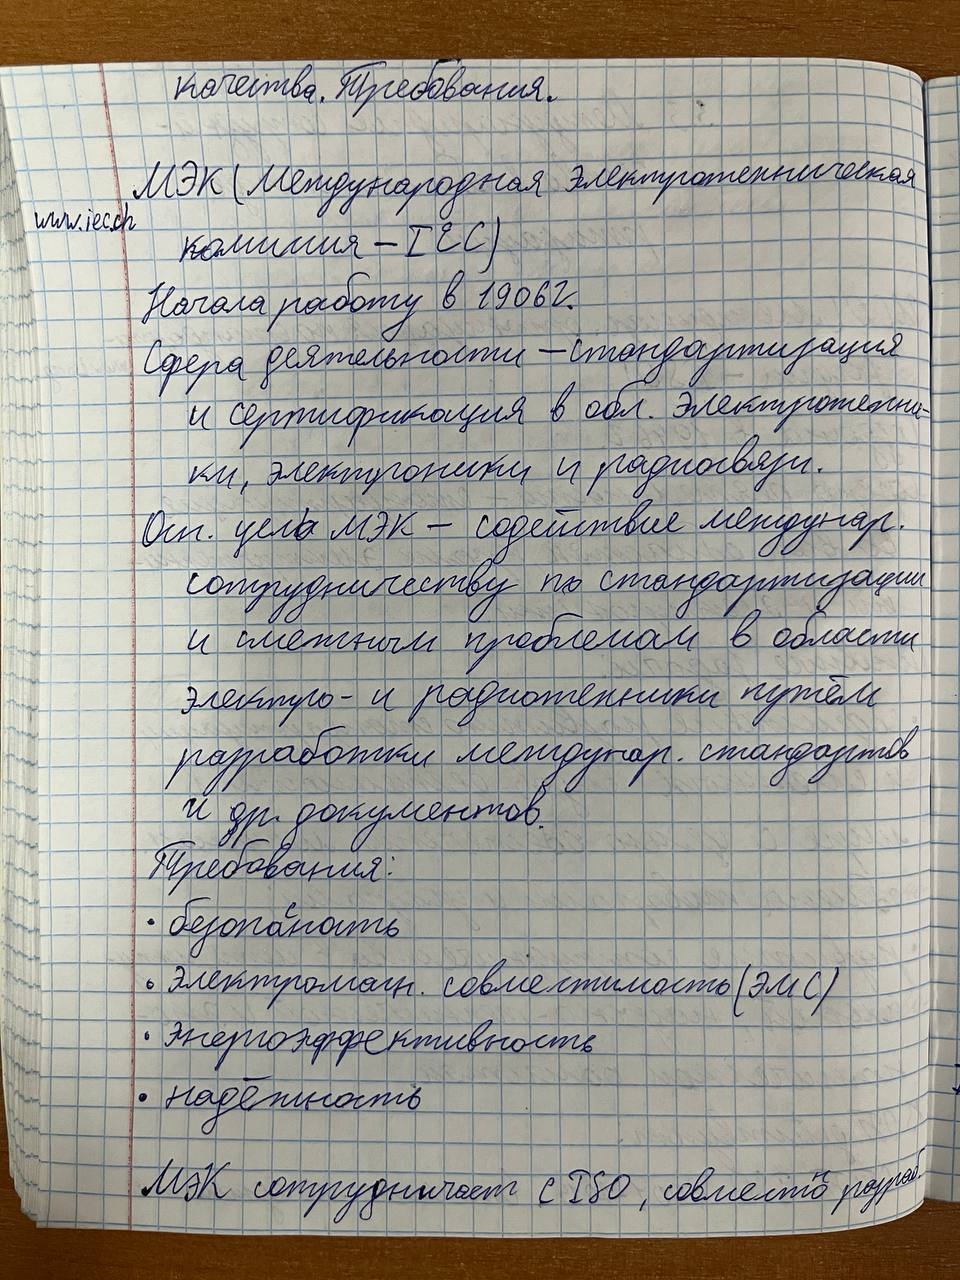 качества. Требования.
МЭК (Международная электротехническая
www.iec.ch
комиссия – IEC)
Начала работу в 1906 г.
Сфера деятельности – стандартизация
и сертификация в обл. электротехни-
ки, электроники и радиосвязи.
Осн. цель МЭК – содействие междунар.
сотрудничеству по стандартизации
и смежным проблемам в области
электро- и радиотехники путём
разработки междунар. стандартов
и др. документов.
Требования:
• безопасность
• электромагн. совместимость (ЭМС)
• энергоэффективность
• надёжность
МЭК сотрудничает с ISO, совместно разраб.